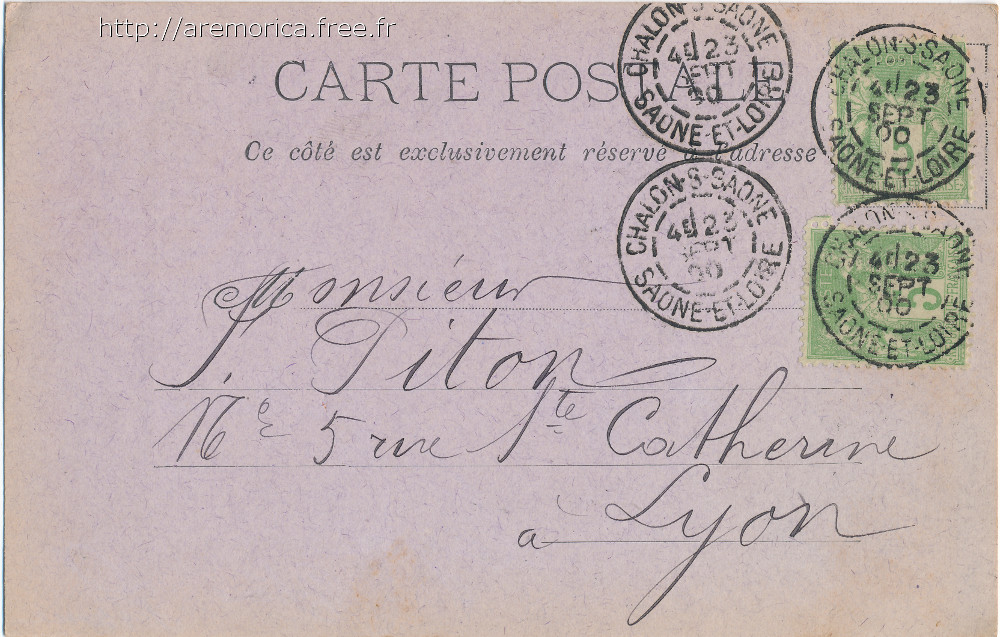 http://aremorica.free.fr
CARTE POSTALE
Ce côté est exclusivement réservé à l'adresse
CHALON-S-SAONE
4E 23
SEPT
00
SAONE-ET-LOIRE
CHALON-S-SAONE
4E 23
SEPT
00
SAONE-ET-LOIRE
CHALON-S-SAONE
4E 23
SEPT
00
SAONE-ET-LOIRE
CHALON-S-SAONE
4E 23
SEPT
00
SAONE-ET-LOIRE
Monsieur
P. Piton
Ne 5 rue Ste Catherine
à Lyon